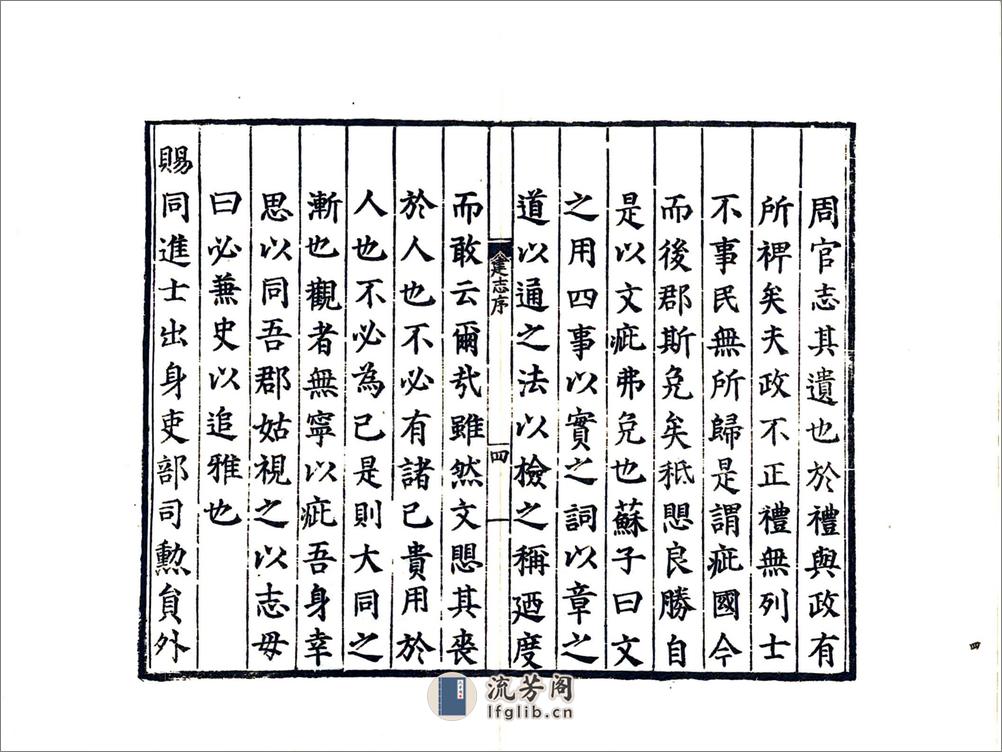 周官志其遺也於禮與政有
所裨矣夫政不正禮無列士
不事民無所歸是謂疵國今
而後郡斯免矣秪愳良勝自
是以文疵弗免也蘇子曰文
之用四事以實之詞以章之
道以通之法以檢之稱迺度
建志序
四
而敢云爾哉雖然文愳其喪
於人也不必有諸己貴用於
人也不必為己是則大同之
漸也觀者無寧以疵吾身幸
思以同吾郡姑視之以志毋
曰必兼史以追雅也
賜同進士出身吏部司勲員外
四
流芳阁
lfglib.cn